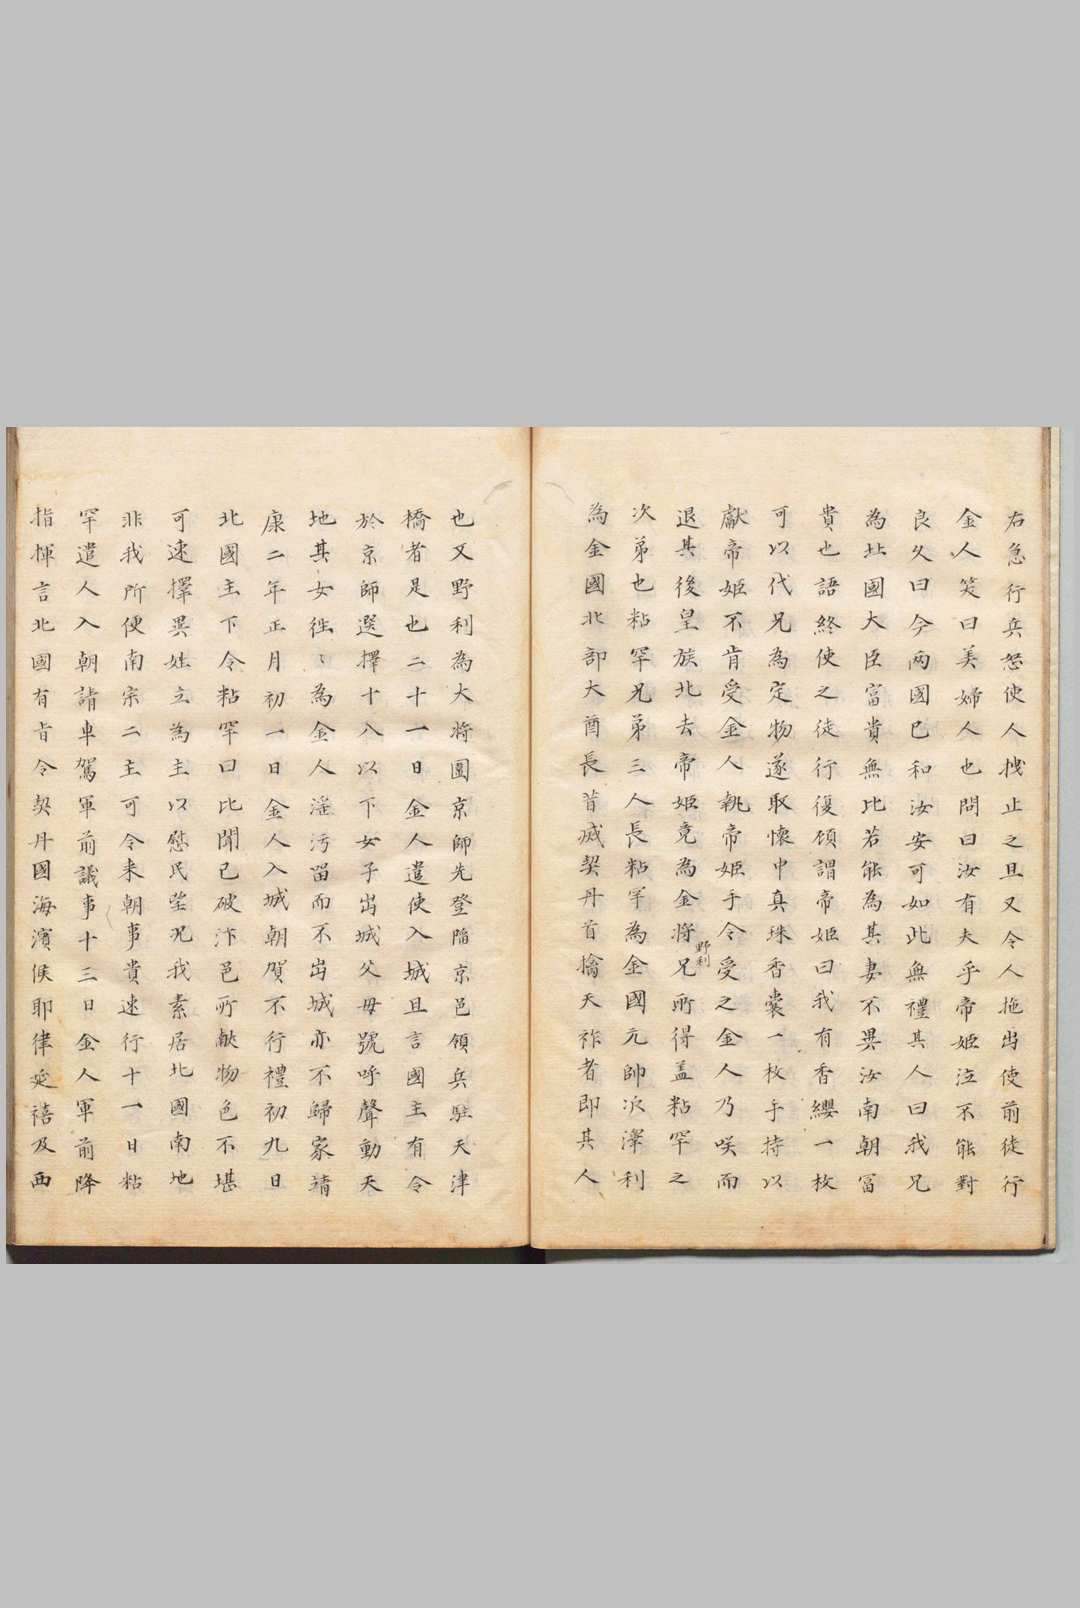 右急行兵怒使人拽止之且又令人拖出使前徒行
金人笑曰美婦人也問曰汝有夫乎帝姬泣不能對
良久曰今兩國已和汝安可如此無禮其人曰我兄
為北國大臣富貴無比若能為其妻不異汝南朝冨
貴也語終使之徒行復顧謂帝姬曰我有香纓一枚
可以代兄為定物遂取懷中真珠香裳一枚手持以
獻帝姬不肯受金人執帝姬手令受之金人乃咲而
退其後皇族北去帝姬竟為金將兄野利所得盖粘罕之
次弟也粘罕兄弟三人長粘罕為金國元帥次澤利
為金國北部大酋長昔滅契丹首擒天祚者即其人
也又野利為大將圍京師先登陷京邑領兵駐天津
橋者是也二十一日金人遣使入城且言國主有令
於京師選擇十八以下女子出城父母號呼聲動天
地其女徃〻為金人滛污留而不出城亦不歸家靖
康二年正月初一日金人入城朝賀不行禮初九日
北國主下令粘罕曰比聞已破汴邑所献物色不堪
可速擇異姓立為主以慰民望况我素居北國南地
非我所便南宗二主可令来朝事貴速行十一日粘
罕遣人入朝請車駕軍前議事十三日金人軍前降
指揮言北國有旨令契丹國海濱侯耶律延禧及西